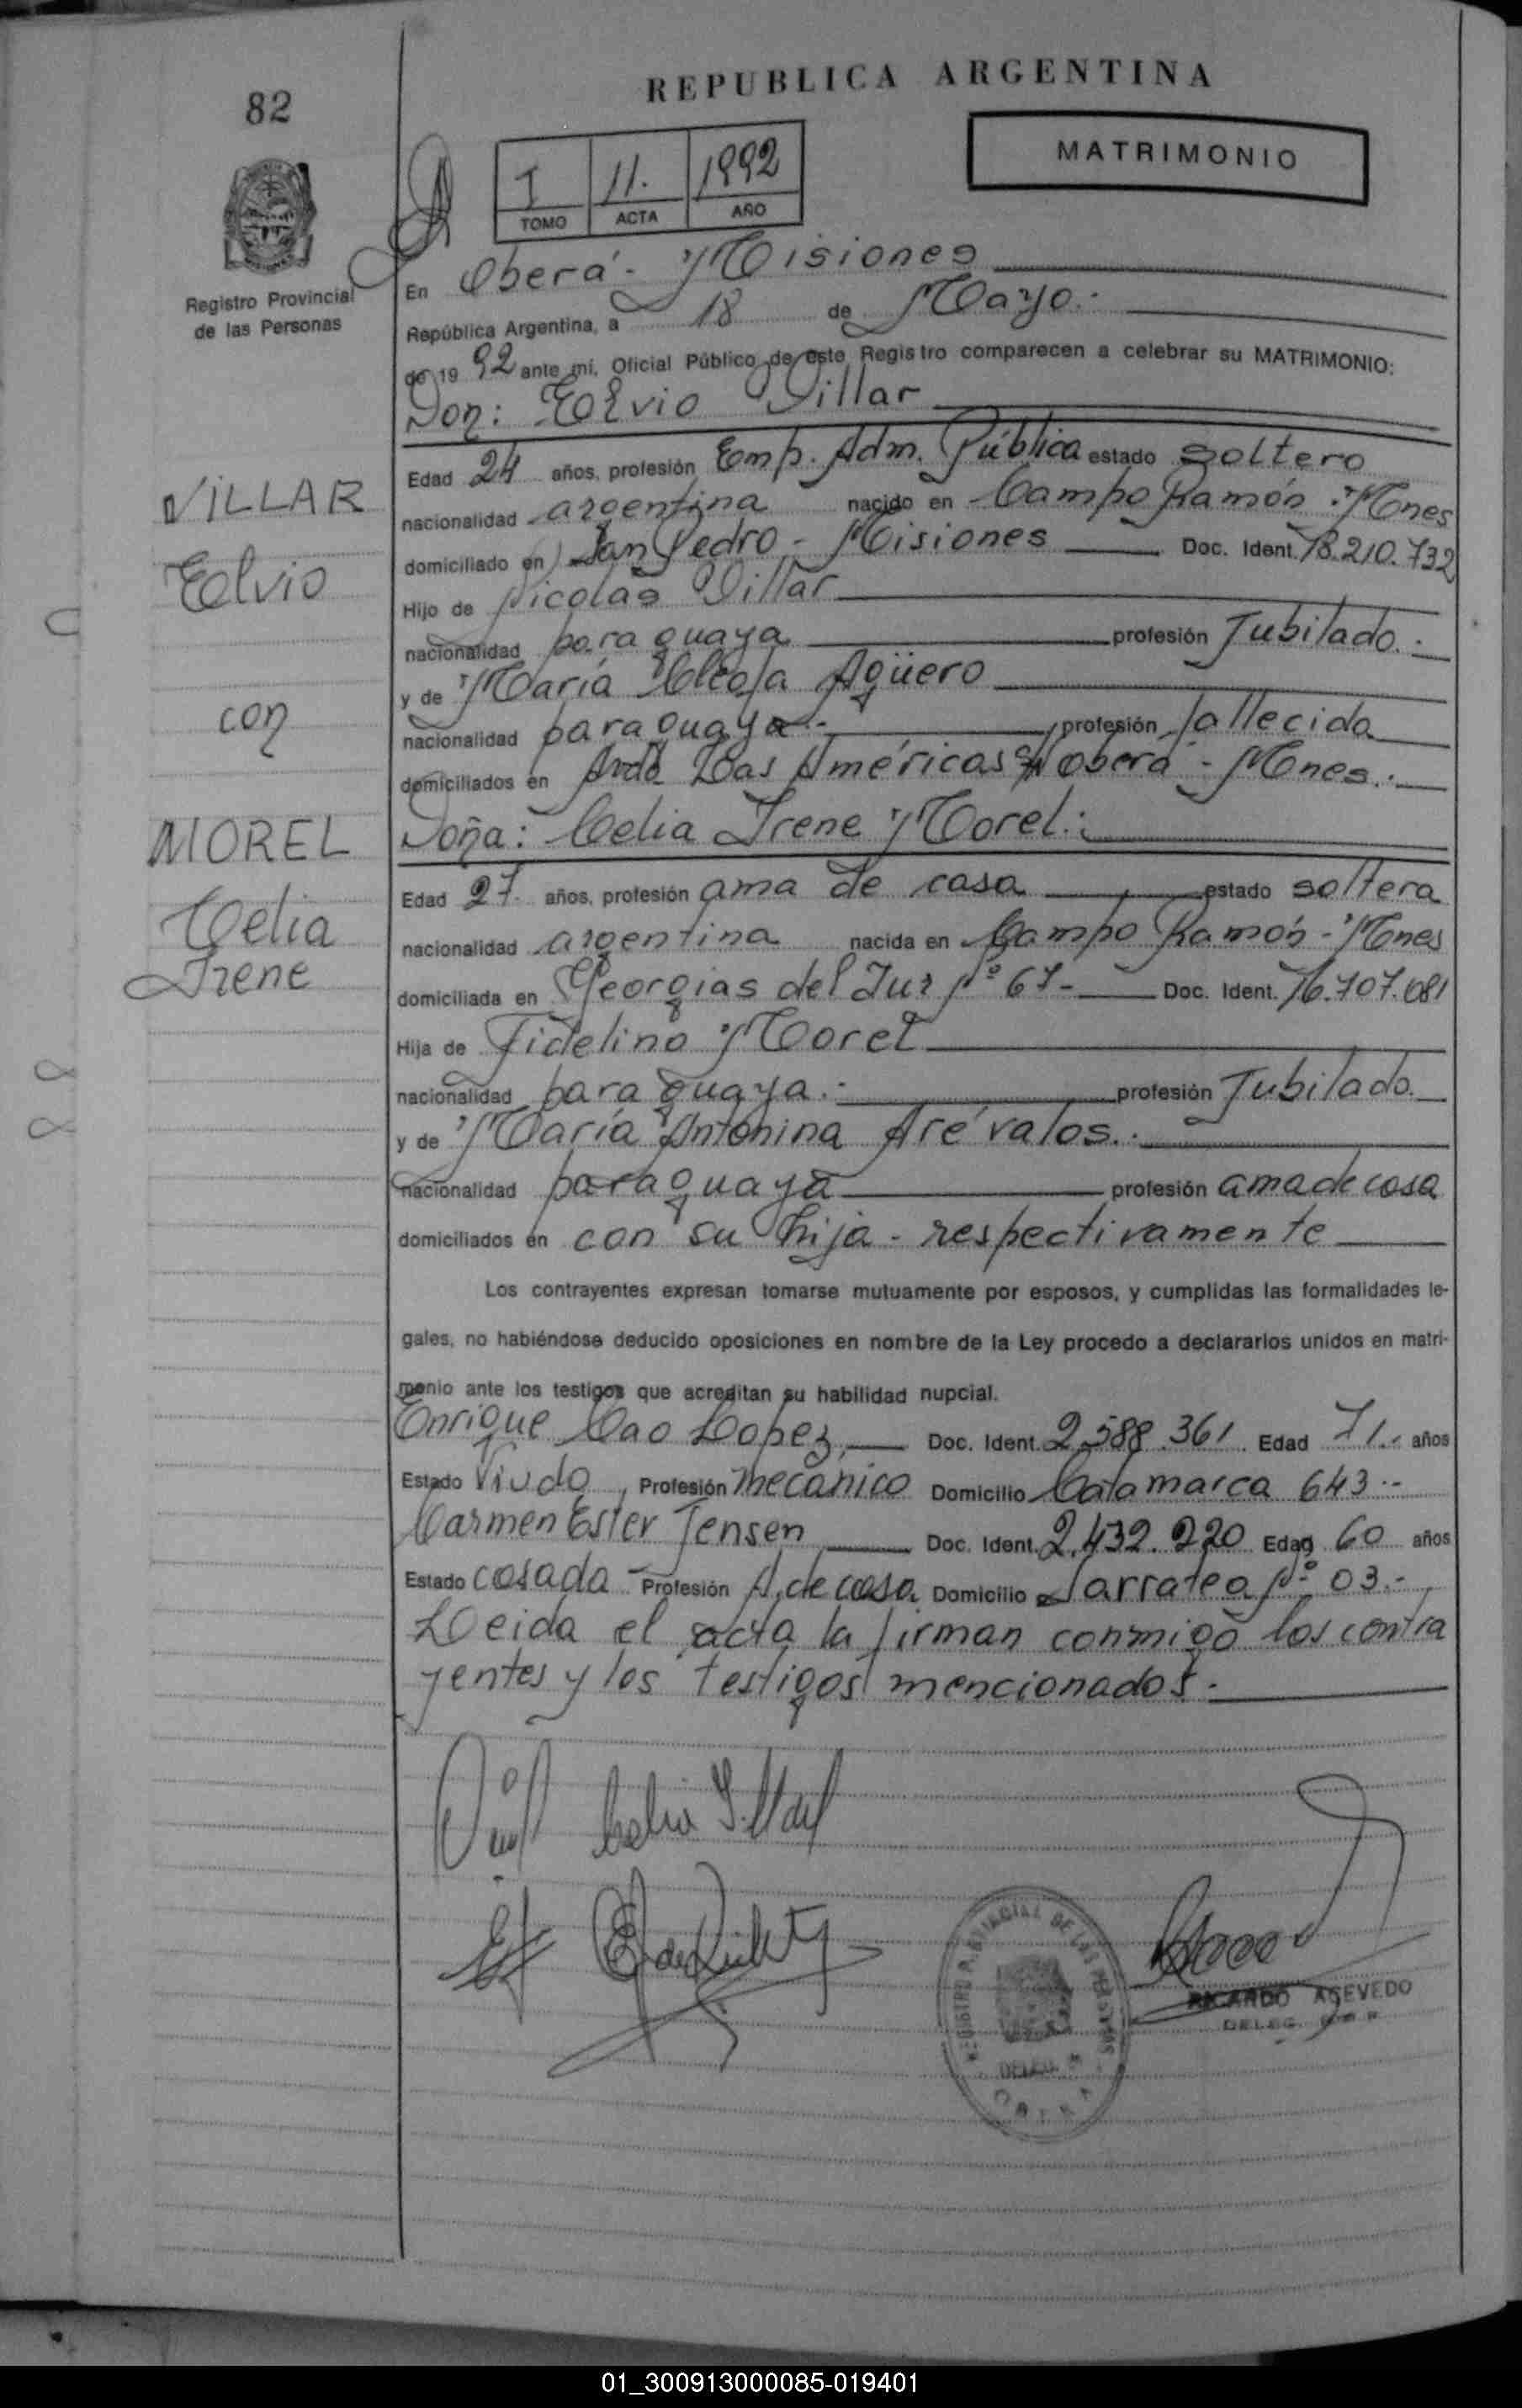 REPUBLICA ARGENTINA
82
MATRIMONIO
I 11. 1992
TOMO ACTA AÑO
Registro Provincial
de las Personas
En Oberá - Misiones
República Argentina, a 18 de Mayo.-
de 19 92 ante mi, Oficial Público de este Registro comparecen a celebrar su MATRIMONIO:
Don: Elvio Villar
Edad 24 años, profesión Emp. Adm. Pública estado soltero
nacionalidad argentina nacido en Campo Ramón - Mnes
domiciliado en San Pedro - Misiones Doc. Ident. 18.210.732
Hijo de Nicolas Villar
nacionalidad paraguaya profesión Jubilado.-
y de María Agüero
nacionalidad paraguaya.- profesión fallecida
domiciliados en Avda Las Américas Oberá - Mnes.-
Doña: Celia Irene Morel.:
Edad 27 años, profesión ama de casa estado soltera
nacionalidad argentina nacida en Campo Ramón - Mnes
domiciliada en Georgias del Sur Nº 67- Doc. Ident. 16.707.081
Hija de Fidelino Morel
nacionalidad paraguaya.- profesión Jubilado.
y de María Antonina Arévalos.-
nacionalidad paraguaya profesión ama de casa
domiciliados en con su hija - respectivamente
Los contrayentes expresan tomarse mutuamente por esposos, y cumplidas las formalidades le-
gales, no habiéndose deducido oposiciones en nombre de la Ley procedo a declararlos unidos en matri-
monio ante los testigos que acreditan su habilidad nupcial.
Enrique Cao Lopez, Doc. Ident. 2.588.361 Edad 71.- años
Estado Viudo, Profesión mecánico Domicilio Catamarca 643.-
Carmen Ester Jensen Doc. Ident. 2.432.220 Edad 60 años
Estado casada - Profesión A. de casa Domicilio Sarratea Nº 03.-
Leida el acta la firman conmigo los contra
yentes y los testigos mencionados.-
VILLAR
Elvio
con
MOREL
Celia
Irene
REGISTRO PROVINCIAL DE LAS PERSONAS
OBERA
RICARDO ACEVEDO
01_300913000085-019401